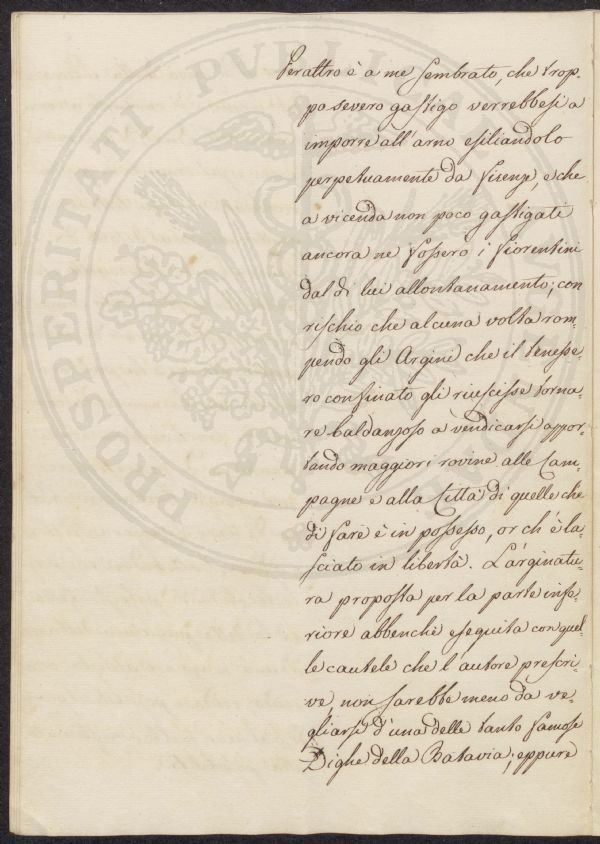 PROSPERITATI PVBLICAE
Peraltro è a me sembrato, che trop-
po severo gastigo verrebbesi a
imporre all'arno esiliandolo
perpetuamente da Firenze, e che
a vicenda non poco gastigati
ancora ne fossero i fiorentini
dal di lui allontanamento; con
rischio che alcuna volta rom-
pendo gli Argini che il tenesse-
ro confinato gli riuscisse torna-
re baldanzoso a vendicarsi appor-
tando maggiori rovine alle Cam-
pagne e alla Città di quelle che
di fare è in possesso, or ch'è la-
sciato in libertà. L'arginatu-
ra proposta per la parte infe-
riore abbenchè eseguita con quel-
le cautele che l'autore prescri-
ve, non sarebbe meno da ve-
gliarsi d'una delle tanto famose
Dighe della Batavia; eppure